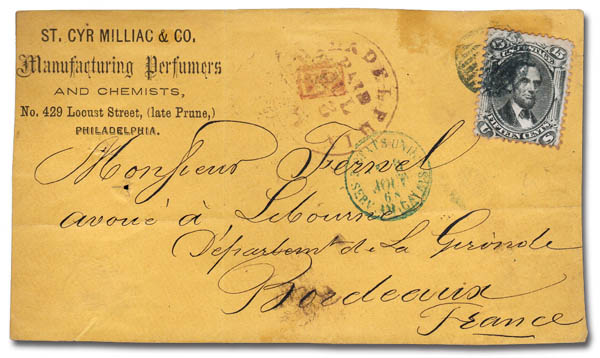 ST. CYR MILLIAC & CO.
Manufacturing Perfumers
AND CHEMISTS,
No. 429 Locust Street, (late Prune,)
PHILADELPHIA.
PHILADELPHIA
PAID
15 15
U.S. POSTAGE
FIFTEEN CENTS
U S
ETATS-UNIS
SERV. CALAIS
AOUT
68
Monsieur Fervel
avoué à Libourne
Départemt de La Gironde
Bordeaux
France